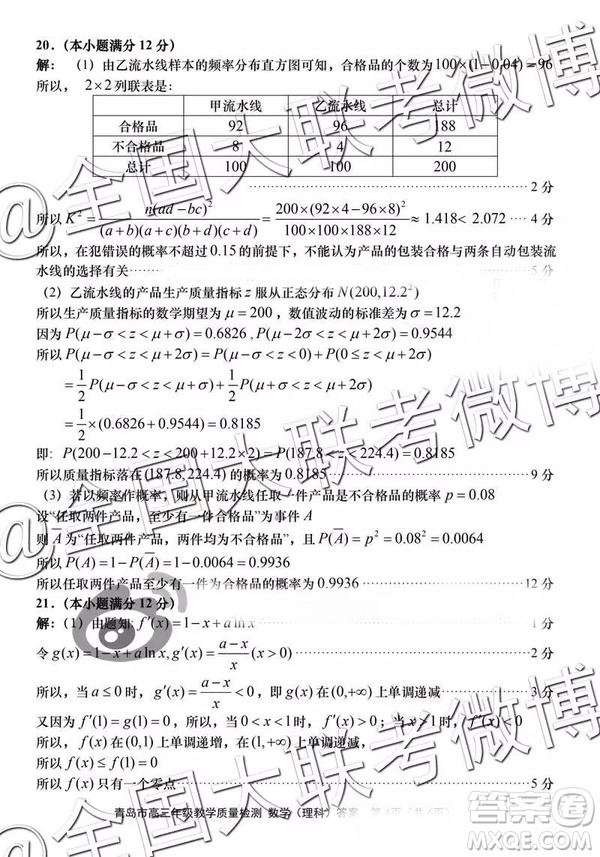 20.（本小题满分 12 分）
解： （1）由乙流水线样本的频率分布直方图可知，合格品的个数为100×(1−0.04)=96
所以， 2×2列联表是：
甲流水线 乙流水线 总计
合格品 92 96 188
不合格品 8 4 12
总计 100 100 200
2 分
所以 K² = n(ad−bc)² / (a+b)(a+c)(b+d)(c+d) = 200×(92×4−96×8)² / 100×100×188×12 ≈ 1.418 < 2.072 ···· 4 分
所以，在犯错误的概率不超过0.15的前提下，不能认为产品的包装合格与两条自动包装流
水线的选择有关 5 分
（2）乙流水线的产品生产质量指标 z 服从正态分布 N(200,12.2²)
所以生产质量指标的数学期望为 μ=200 ，数值波动的标准差为 σ=12.2
因为 P(μ−σ<z<μ+σ)=0.6826 , P(μ−2σ<z<μ+2σ)=0.9544
所以 P(μ−σ<z<μ+2σ)=P(μ−σ<z<0)+P(0≤z<μ+2σ)
= 1/2 P(μ−σ<z<μ+σ)+ 1/2 P(μ−2σ<z<μ+2σ)
= 1/2 ×(0.6826+0.9544)=0.8185
即: P(200−12.2<z<200+12.2×2)=P(187.8<z<224.4)=0.8185
所以质量指标落在(187.8,224.4)的概率为0.8185 9 分
（3）若以频率作概率，则从甲流水线任取一件产品是不合格品的概率 p=0.08
设“任取两件产品，至少有一件合格品”为事件 A
则 A̅ 为“任取两件产品，两件均为不合格品”，且 P(A̅)=p²=0.08²=0.0064
所以 P(A)=1−P(A̅)=1−0.0064=0.9936
所以任取两件产品至少有一件为合格品的概率为0.9936 12 分
21.（本小题满分 12 分）
解：（1）由题知: f′(x)=1−x+a ln x 1 分
令 g(x)=1−x+a ln x, g′(x)= (a−x)/x (x>0) 2 分
所以，当 a≤0 时，g′(x)= (a−x)/x <0，即 g(x) 在 (0,+∞) 上单调递减 3 分
又因为 f′(1)=g(1)=0，所以，当 0<x<1 时，f′(x)>0；当 x>1 时，f′(x)<0
所以，f(x) 在 (0,1) 上单调递增，在 (1,+∞) 上单调递减，
所以 f(x)≤f(1)=0
所以 f(x) 只有一个零点 5 分
青岛市高三年级教学质量检测 数学（理科）答案 第4页（共6页）
@全国大联考微博
@全国大联考微博
答案圈